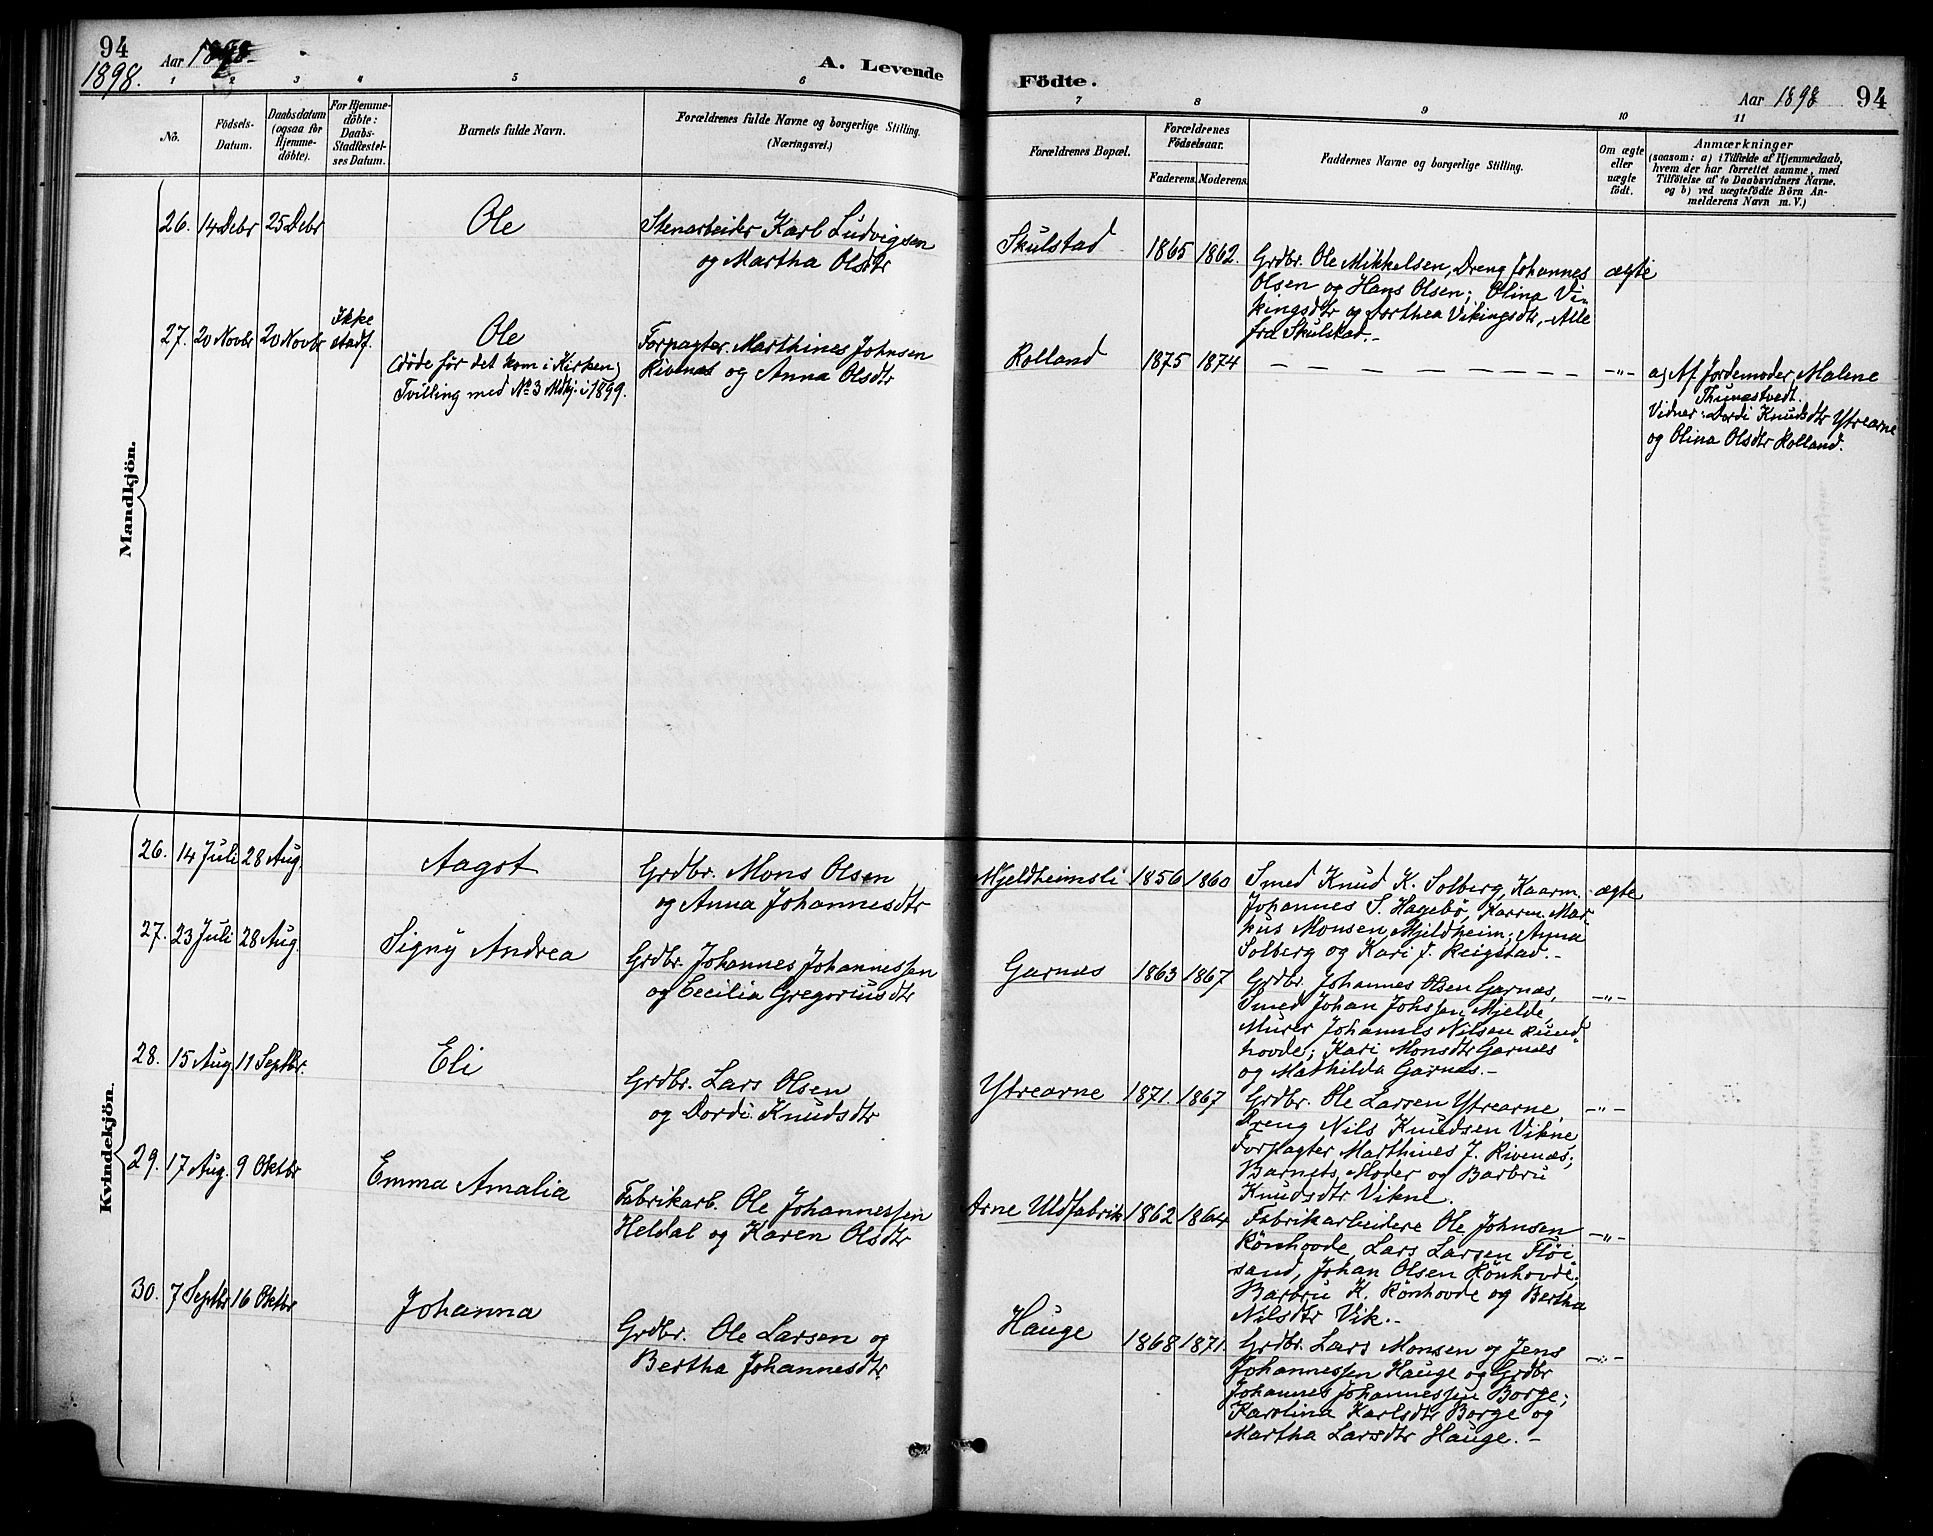 94
Aar 1898.
1898.
A. Levende
Födte.
Aar 1898
94
1 2 3 4 5 6 7 8 9 10 11
No.
Födsels-
Datum.
Daabsdatum
(ogsaa for
Hjemme-
döbte).
For Hjemme-
döbte:
Daabs-
Stadfæstel-
ses Datum.
Barnets fulde Navn.
Forældrenes fulde Navne og borgerlige Stilling.
(Næringsvei.)
Forældrenes Bopæl.
Forældrenes
Födselsaar.
Faderens. Moderens.
Faddernes Navne og borgerlige Stilling.
Om ægte
eller
uægte
födt.
Anmærkninger
(saasom: a) i Tilfælde af Hjemmedaab,
hvem der har forrettet samme, med
Tilföielse af to Daabsvidners Navne,
og b) ved uægtefödte Börn An-
melderens Navn m. V.)
Mandkjön.
26. 14 Debr 25 Debr
Ole
Stenarbeider Karl Ludvigsen
og Martha Olsdtr
Skulstad 1865 1862.
Grdbr. Ole Mikkelsen, Dreng Johannes
Olsen og Hans Olsen; Olina Vi-
kingsdtr og Dorthea Vikingsdtr, Alle
fra Skulstad.-
ægte
27. 20 Novbr 20 Novbr
Ikke
stadf.
Ole
(döde för det kom i Kirken)
Tvilling med No 3 Mdkj. i 1899.
Forpagter Marthines Johnsen
Rivenæs og Anna Olsdtr
Rolland 1875 1874
— — — — — — — — —
-"-
a) Af Jordemoder Malene
Thunæstvedt.
Vidner: Dordi Knudsdtr Ytrearne
og Olina Olsdtr Rolland.
Kvindekjön.
26. 14 Juli 28 Aug.
Aagot
Grdbr. Mons Olsen
og Anna Johannesdtr
Mjeldheimsli 1856 1860
Smed Knud K. Solberg, Kaarm.
Johannes S. Hagebö, Kaarm. Mar
kus Monsen Mjeldheim; Anna
Solberg og Kari J. Reigstad.-
ægte
27. 23 Juli 28 Aug.
Signy Andrea
Grdbr. Johannes Johannessen
og Cecilia Gregoriusdtr
Garnæs 1863 1867
Grdbr. Johannes Olsen Garnæs,
Smed Johan Johssen Mjelde,
Murer Johannes Nilsen Rund
hovde; Kari Monsdtr Garnæs
og Mathilda Garnæs.-
-"-
28. 15 Aug 11 Septbr.
Eli
Grdbr. Lars Olsen
og Dordi Knudsdtr
Ytrearne 1871. 1867
Grdbr. Ole Larsen Ytrearne,
Dreng Nils Knudsen Vikne,
Forpagter Marthines J. Rivenæs;
Barnets Moder og Barbru
Knudsdtr Vikne.
-"-
29. 17 Aug. 9 Oktbr
Emma Amalia
Fabrikarb. Ole Johannessen
Heldal og Karen Olsdtr
Arne Uldfabrik 1862 1864
Fabrikarbeidere Ole Johnsen
Rönhovde, Lars Larsen Flöi
sand, Johan Olsen Rönhovde;
Barbru K. Rönhovde og Bertha
Nilsdtr Vik.-
-"-
30. 7 Septbr 16 Oktbr
Johanna
Grdbr. Ole Larsen og
Bertha Johannesdtr
Hauge 1868 1871.
Grdbr. Lars Monsen og Jens
Johannessen Hauge og Grdbr
Johannes Johannessen Borge;
Karolina Karlsdtr Borge og
Martha Larsdtr Hauge.-
-"-